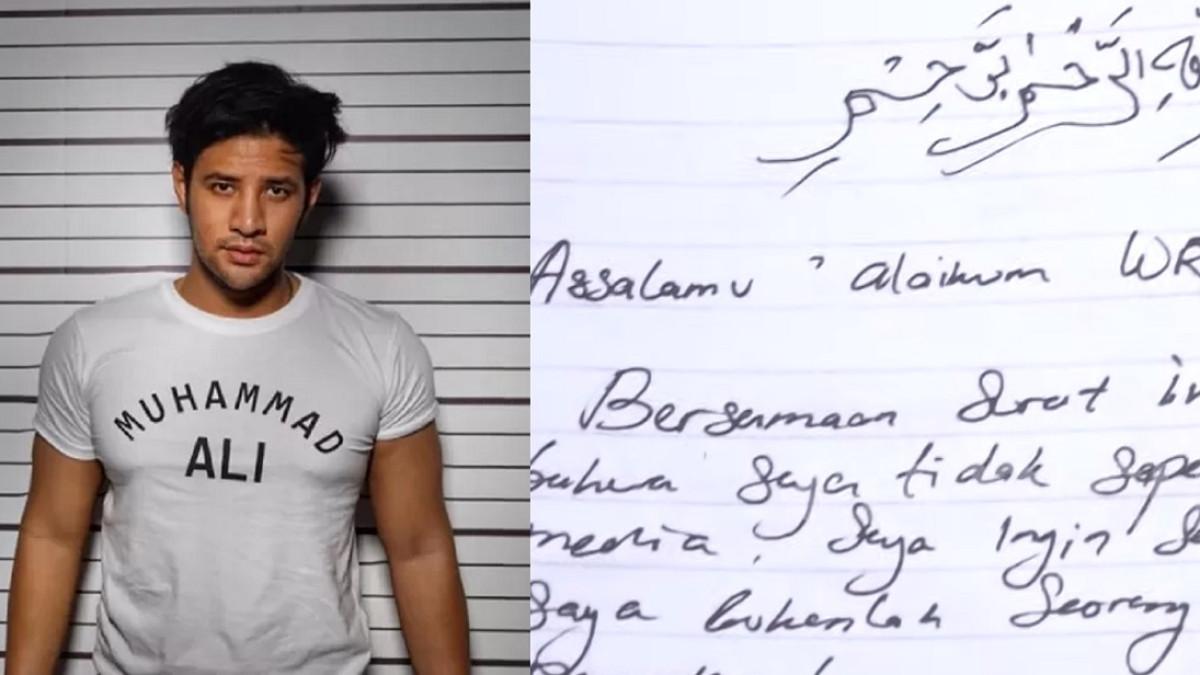 MUHAMMAD
ALI
الرَّحْمٰنِ الرَّحِيْمِ
Assalamu 'alaikum WR
Bersamaan Surat in
bahwa saya tidak sepe
media, saya Ingin Se
saya bukanlah Seorang